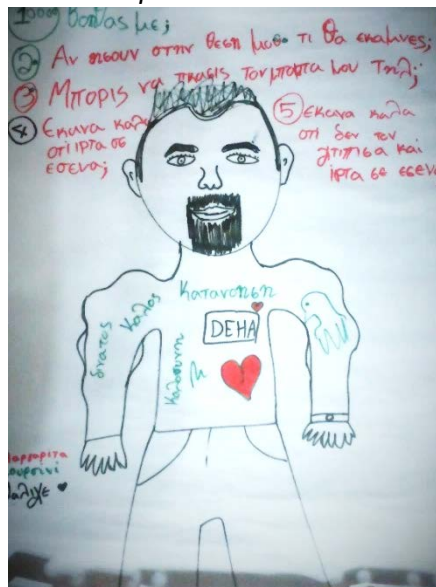 ① Βοηθας με;
② Αν ησουν στην θεση μου τι θα εκαμνες;
③ Μπορις να πιασις τον μπαπα μου τηλ;
④ Εκανα καλα
οτι ιρτα σε
εσενα;
⑤ Εκανα καλα
οτι δεν τον
χτιπισα και
ιρτα σε εσενα
Κατανοηση
Καλος
δυνατος
Καλοσυνη
DEHA
Μαργαριτα